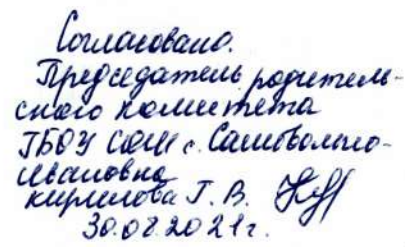 Согласовано.
Председатель родитель-
ского комитета
ГБОУ СОШ с. Самовольно-
Ивановка
Кирилова Г. В.
30.08.2021г.